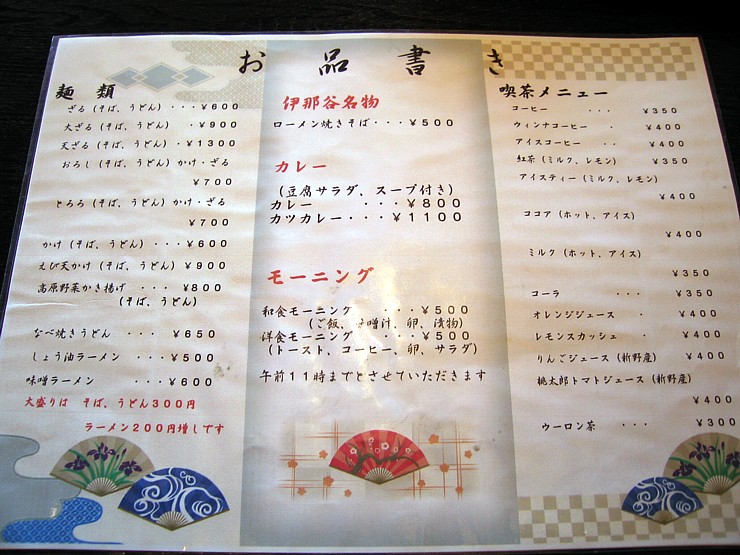 お品書き
麺類
ざる（そば、うどん）・・・￥６００
大ざる（そば、うどん）　・￥９００
天ざる（そば、うどん）・￥１３００
おろし（そば、うどん）かけ・ざる
￥７００
とろろ（そば、うどん）かけ・ざる
￥７００
かけ（そば、うどん）・・・￥６００
えび天かけ（そば、うどん）￥９００
高原野菜かき揚げ　・・・　￥８００
（そば、うどん）
なべ焼きうどん　・・・￥６５０
しょう油ラーメン　・・・￥５００
味噌ラーメン　　・・・￥６００
大盛りは　そば、うどん３００円
ラーメン２００円増しです
伊那谷名物
ローメン焼きそば・・・￥５００
カレー
（豆腐サラダ、スープ付き）
カレー　　　・・・￥８００
カツカレー・・・￥１１００
モーニング
和食モーニング　　・・・￥５００
（ご飯、味噌汁、卵、漬物）
洋食モーニング　　・・・￥５００
（トースト、コーヒー、卵、サラダ）
午前１１時までとさせていただきます
喫茶メニュー
コーヒー　　・・・　￥３５０
ウィンナコーヒー　・　￥４００
アイスコーヒー　・・　￥４００
紅茶（ミルク、レモン）　￥３５０
アイスティー（ミルク、レモン）
￥４００
ココア（ホット、アイス）
￥４００
ミルク（ホット、アイス）
￥３５０
コーラ　　・・・　￥３５０
オレンジジュース　・　￥４００
レモンスカッシュ　・　￥４００
りんごジュース（新野産）￥４００
桃太郎トマトジュース（新野産）
￥４００
ウーロン茶　・・・　￥３００